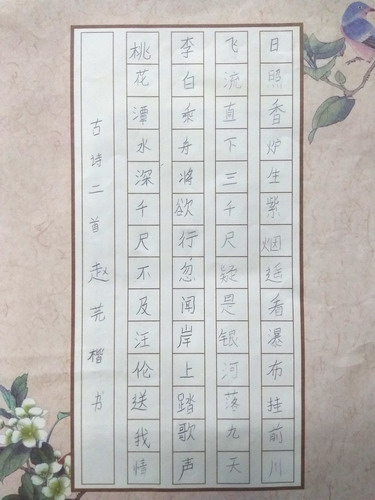 日照香炉生紫烟遥看瀑布挂前川
飞流直下三千尺疑是银河落九天
李白乘舟将欲行忽闻岸上踏歌声
桃花潭水深千尺不及汪伦送我情
古诗二首赵芫楷书